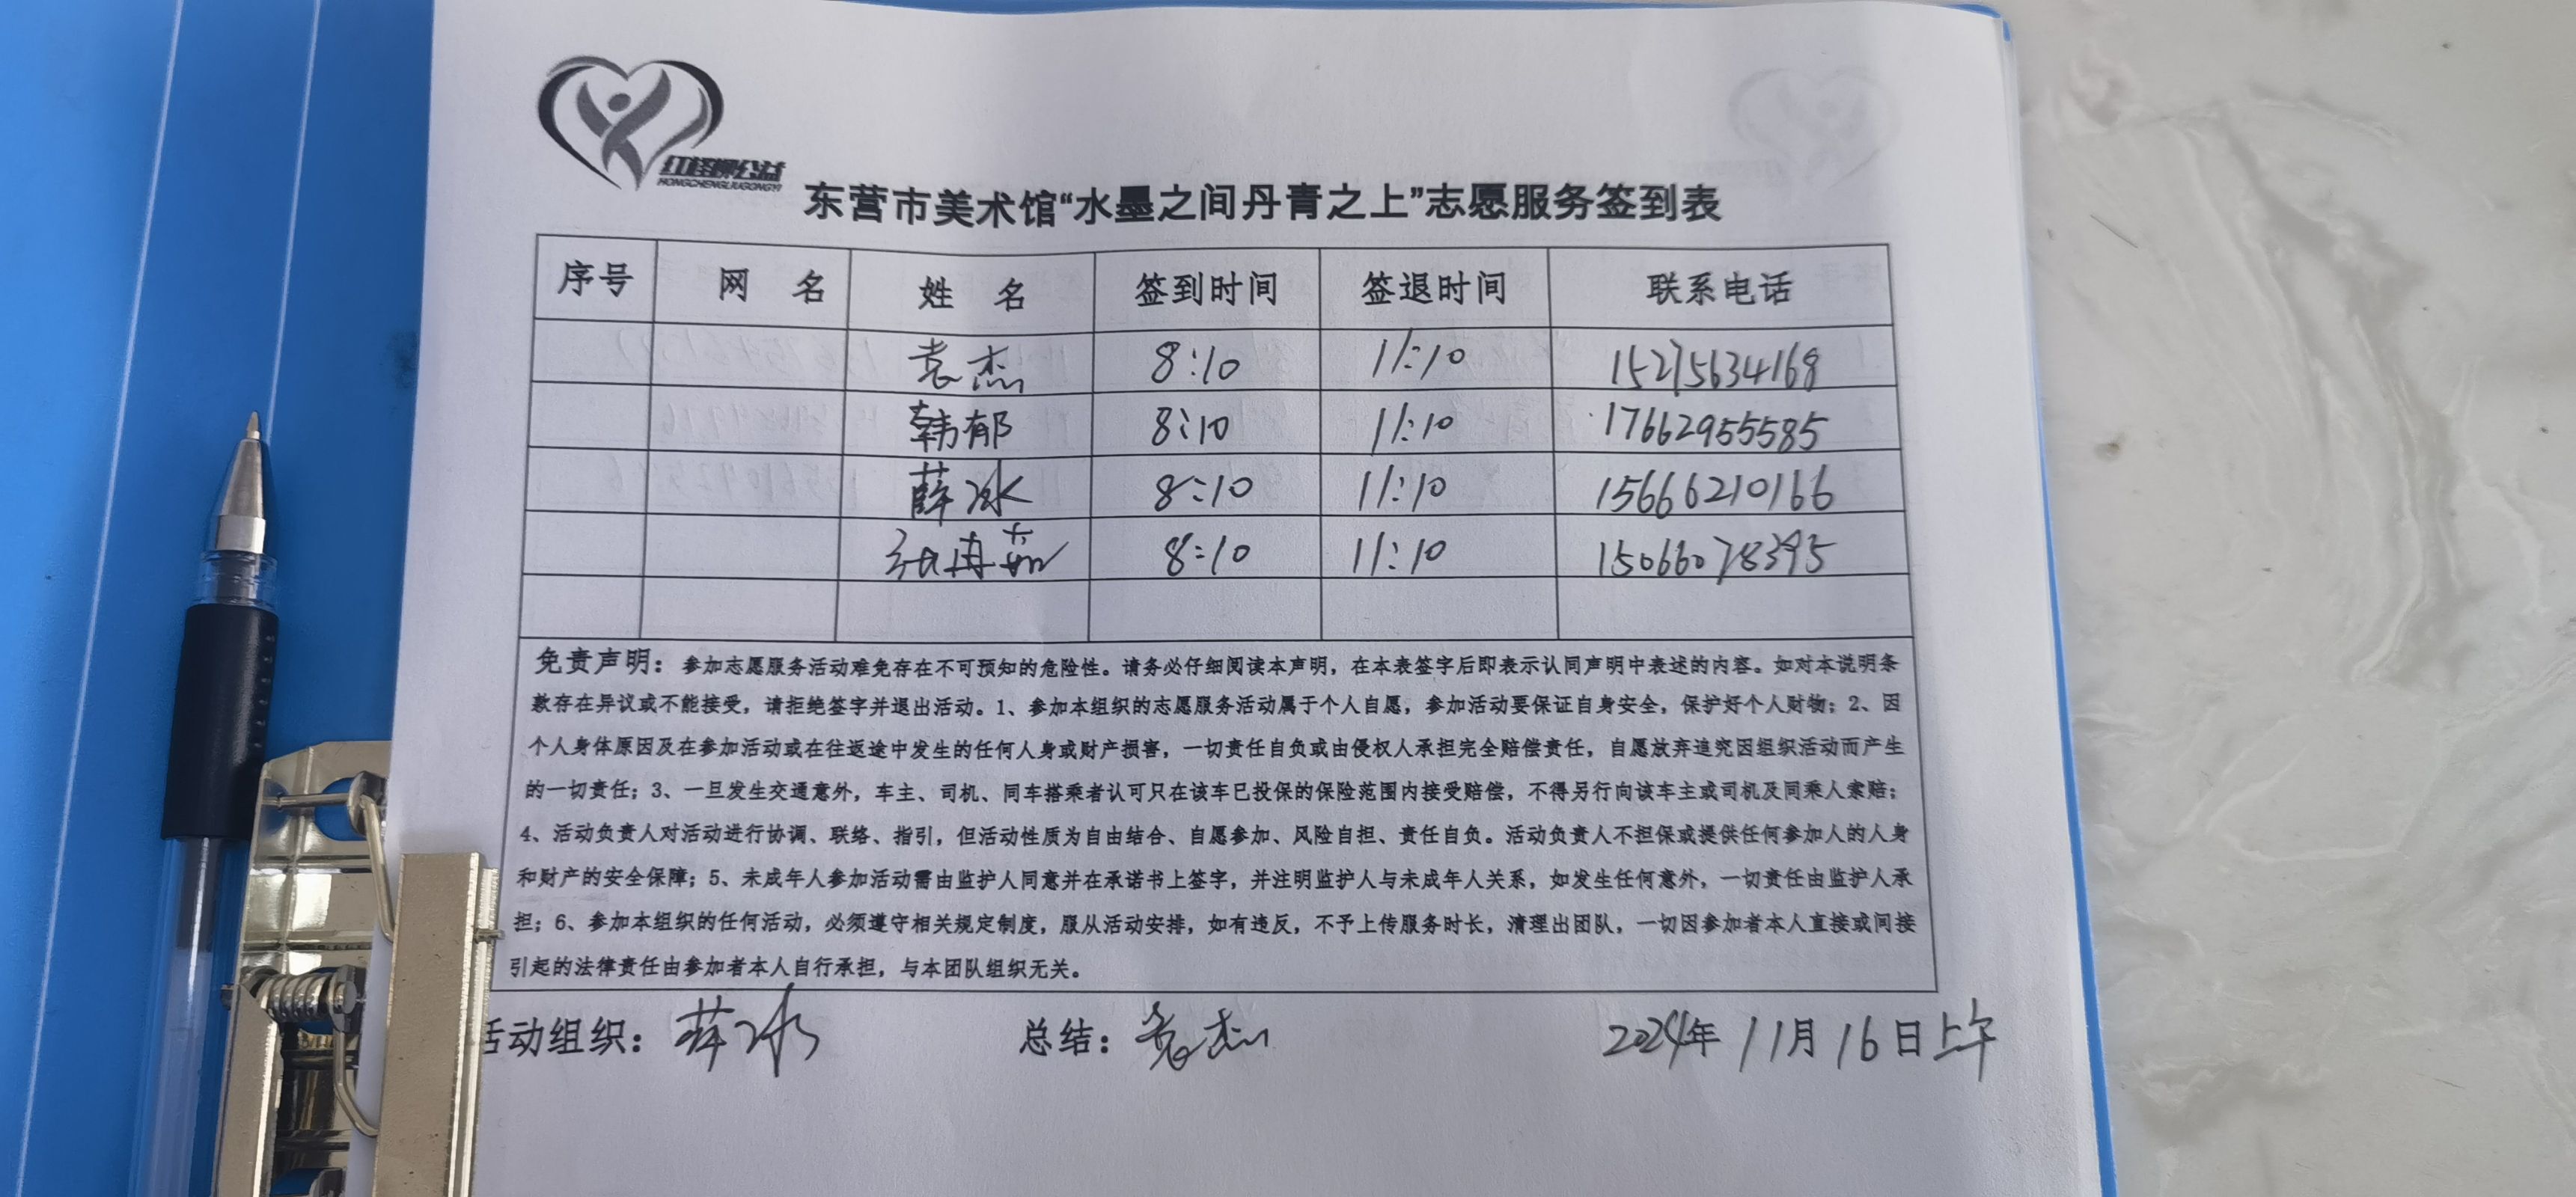 红柽柳公益
HONGCHENGLIUGONGYI
东营市美术馆“水墨之间丹青之上”志愿服务签到表
序号 网 名 姓 名 签到时间 签退时间 联系电话
袁杰 8:10 11:10 15275634168
韩郁 8:10 11:10 17662955585
薛冰 8:10 11:10 15666210166
张冉茹 8:10 11:10 15066078395
免责声明：参加志愿服务活动难免存在不可预知的危险性。请务必仔细阅读本声明，在本表签字后即表示认同声明中表述的内容。如对本说明条
款存在异议或不能接受，请拒绝签字并退出活动。1、参加本组织的志愿服务活动属于个人自愿，参加活动要保证自身安全，保护好个人财物；2、因
个人身体原因及在参加活动或在往返途中发生的任何人身或财产损害，一切责任自负或由侵权人承担完全赔偿责任，自愿放弃追究因组织活动而产生
的一切责任；3、一旦发生交通意外，车主、司机、同车搭乘者认可只在该车已投保的保险范围内接受赔偿，不得另行向该车主或司机及同乘人索赔；
4、活动负责人对活动进行协调、联络、指引，但活动性质为自由结合、自愿参加、风险自担、责任自负。活动负责人不担保或提供任何参加人的人身
和财产的安全保障；5、未成年人参加活动需由监护人同意并在承诺书上签字，并注明监护人与未成年人关系，如发生任何意外，一切责任由监护人承
担；6、参加本组织的任何活动，必须遵守相关规定制度，服从活动安排，如有违反，不予上传服务时长，清理出团队，一切因参加者本人直接或间接
引起的法律责任由参加者本人自行承担，与本团队组织无关。
活动组织：薛冰 总结：袁杰 2024年11月16日上午